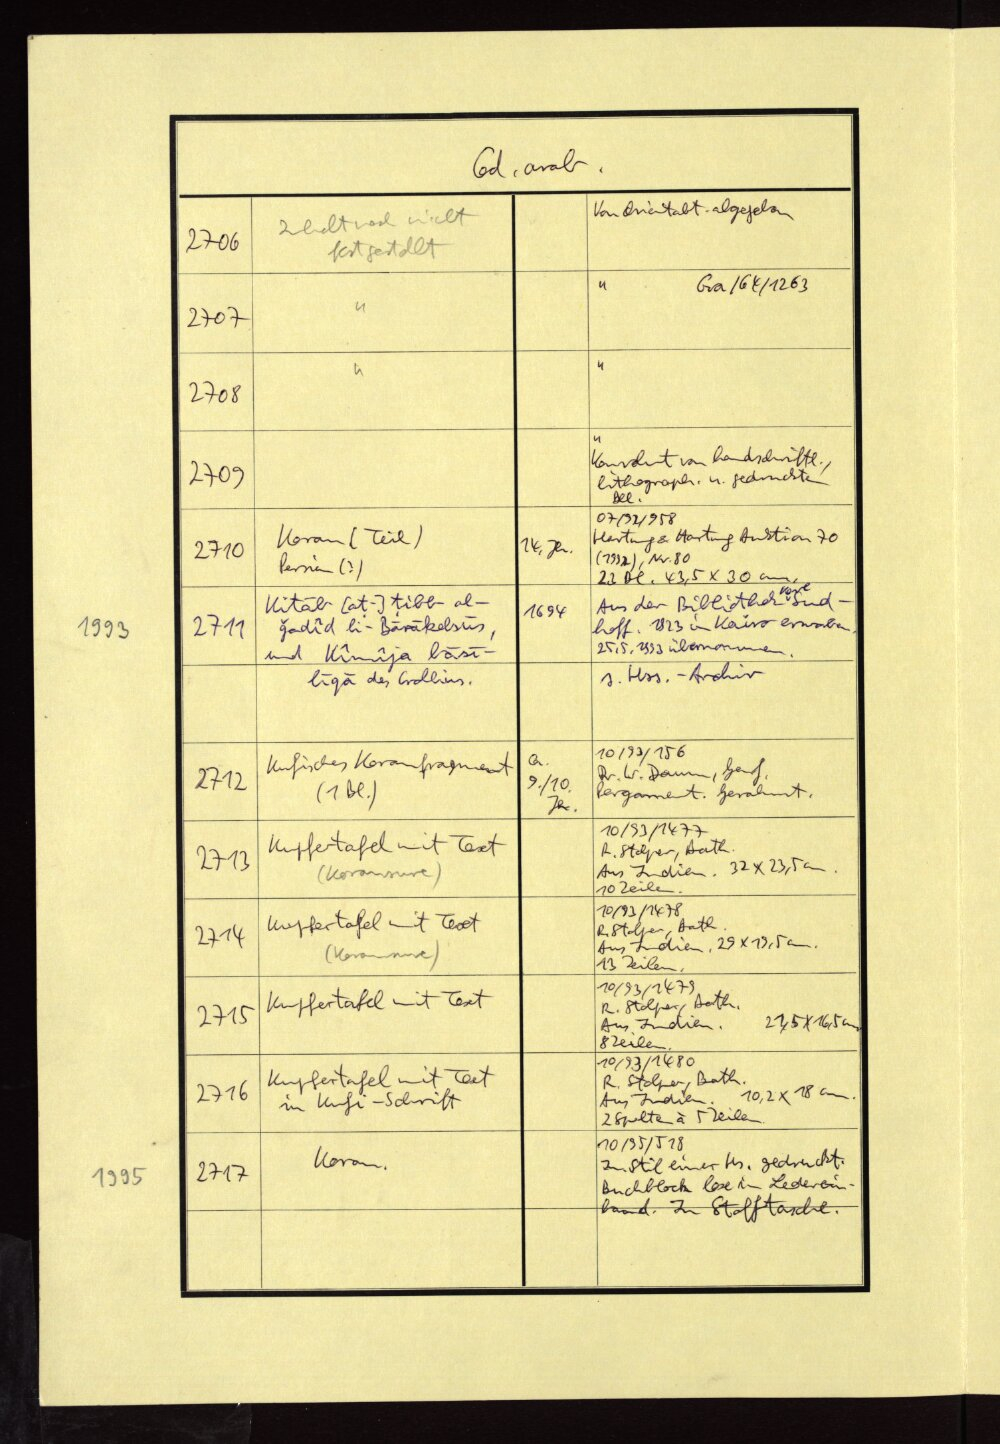 Cod. arab.
2706
Inhalt noch nicht
festgestellt
Von Orientabt. abgegeben
2707
"
" Gra/64/1263
2708
"
"
2709
"
Konvolut von handschriftl.,
lithograph. u. gedruckten
Bll.
2710
Koran (Teil)
Persien (?)
14. Jh.
07/92/958
Hartung & Hartung Auktion 70
(1992), Nr. 80
23 Bl. 43,5 x 30 cm.
1993
2711
Kitāb [aṭ-] ṭibb al-
ǧadīd li-Bārākelsūs,
und Kīmīja bāsī-
līqā des Crollius.
1694
Aus der Bibliothek Sud-
hoff. 1923 in Kairo erworben.
25.5.1993 übernommen.
s. Hss.-Archiv
2712
Kufisches Koranfragment
(1 Bl.)
ca.
9./10.
Jh.
10/93/156
Dr. W. Daum, Genf.
Pergament. Gerahmt.
2713
Kupfertafel mit Text
(Koransure)
10/93/1477
R. Stolper, Bath.
Aus Indien. 32 x 23,5 cm.
10 Zeilen.
2714
Kupfertafel mit Text
(Koransure)
10/93/1478
R. Stolper, Bath.
Aus Indien. 29 x 19,5 cm.
13 Zeilen.
2715
Kupfertafel mit Text
10/93/1479
R. Stolper, Bath.
Aus Indien. 21,5 x 16,5 cm
8 Zeilen.
2716
Kupfertafel mit Text
in Kufi-Schrift
10/93/1480
R. Stolper, Bath.
Aus Indien. 10,2 x 18 cm.
2 Spalten à 5 Zeilen
1995
2717
Koran.
10/95/518
Im Stil einer Hs. gedruckt.
Buchblock lose in Lederein-
band. In Stofftasche.